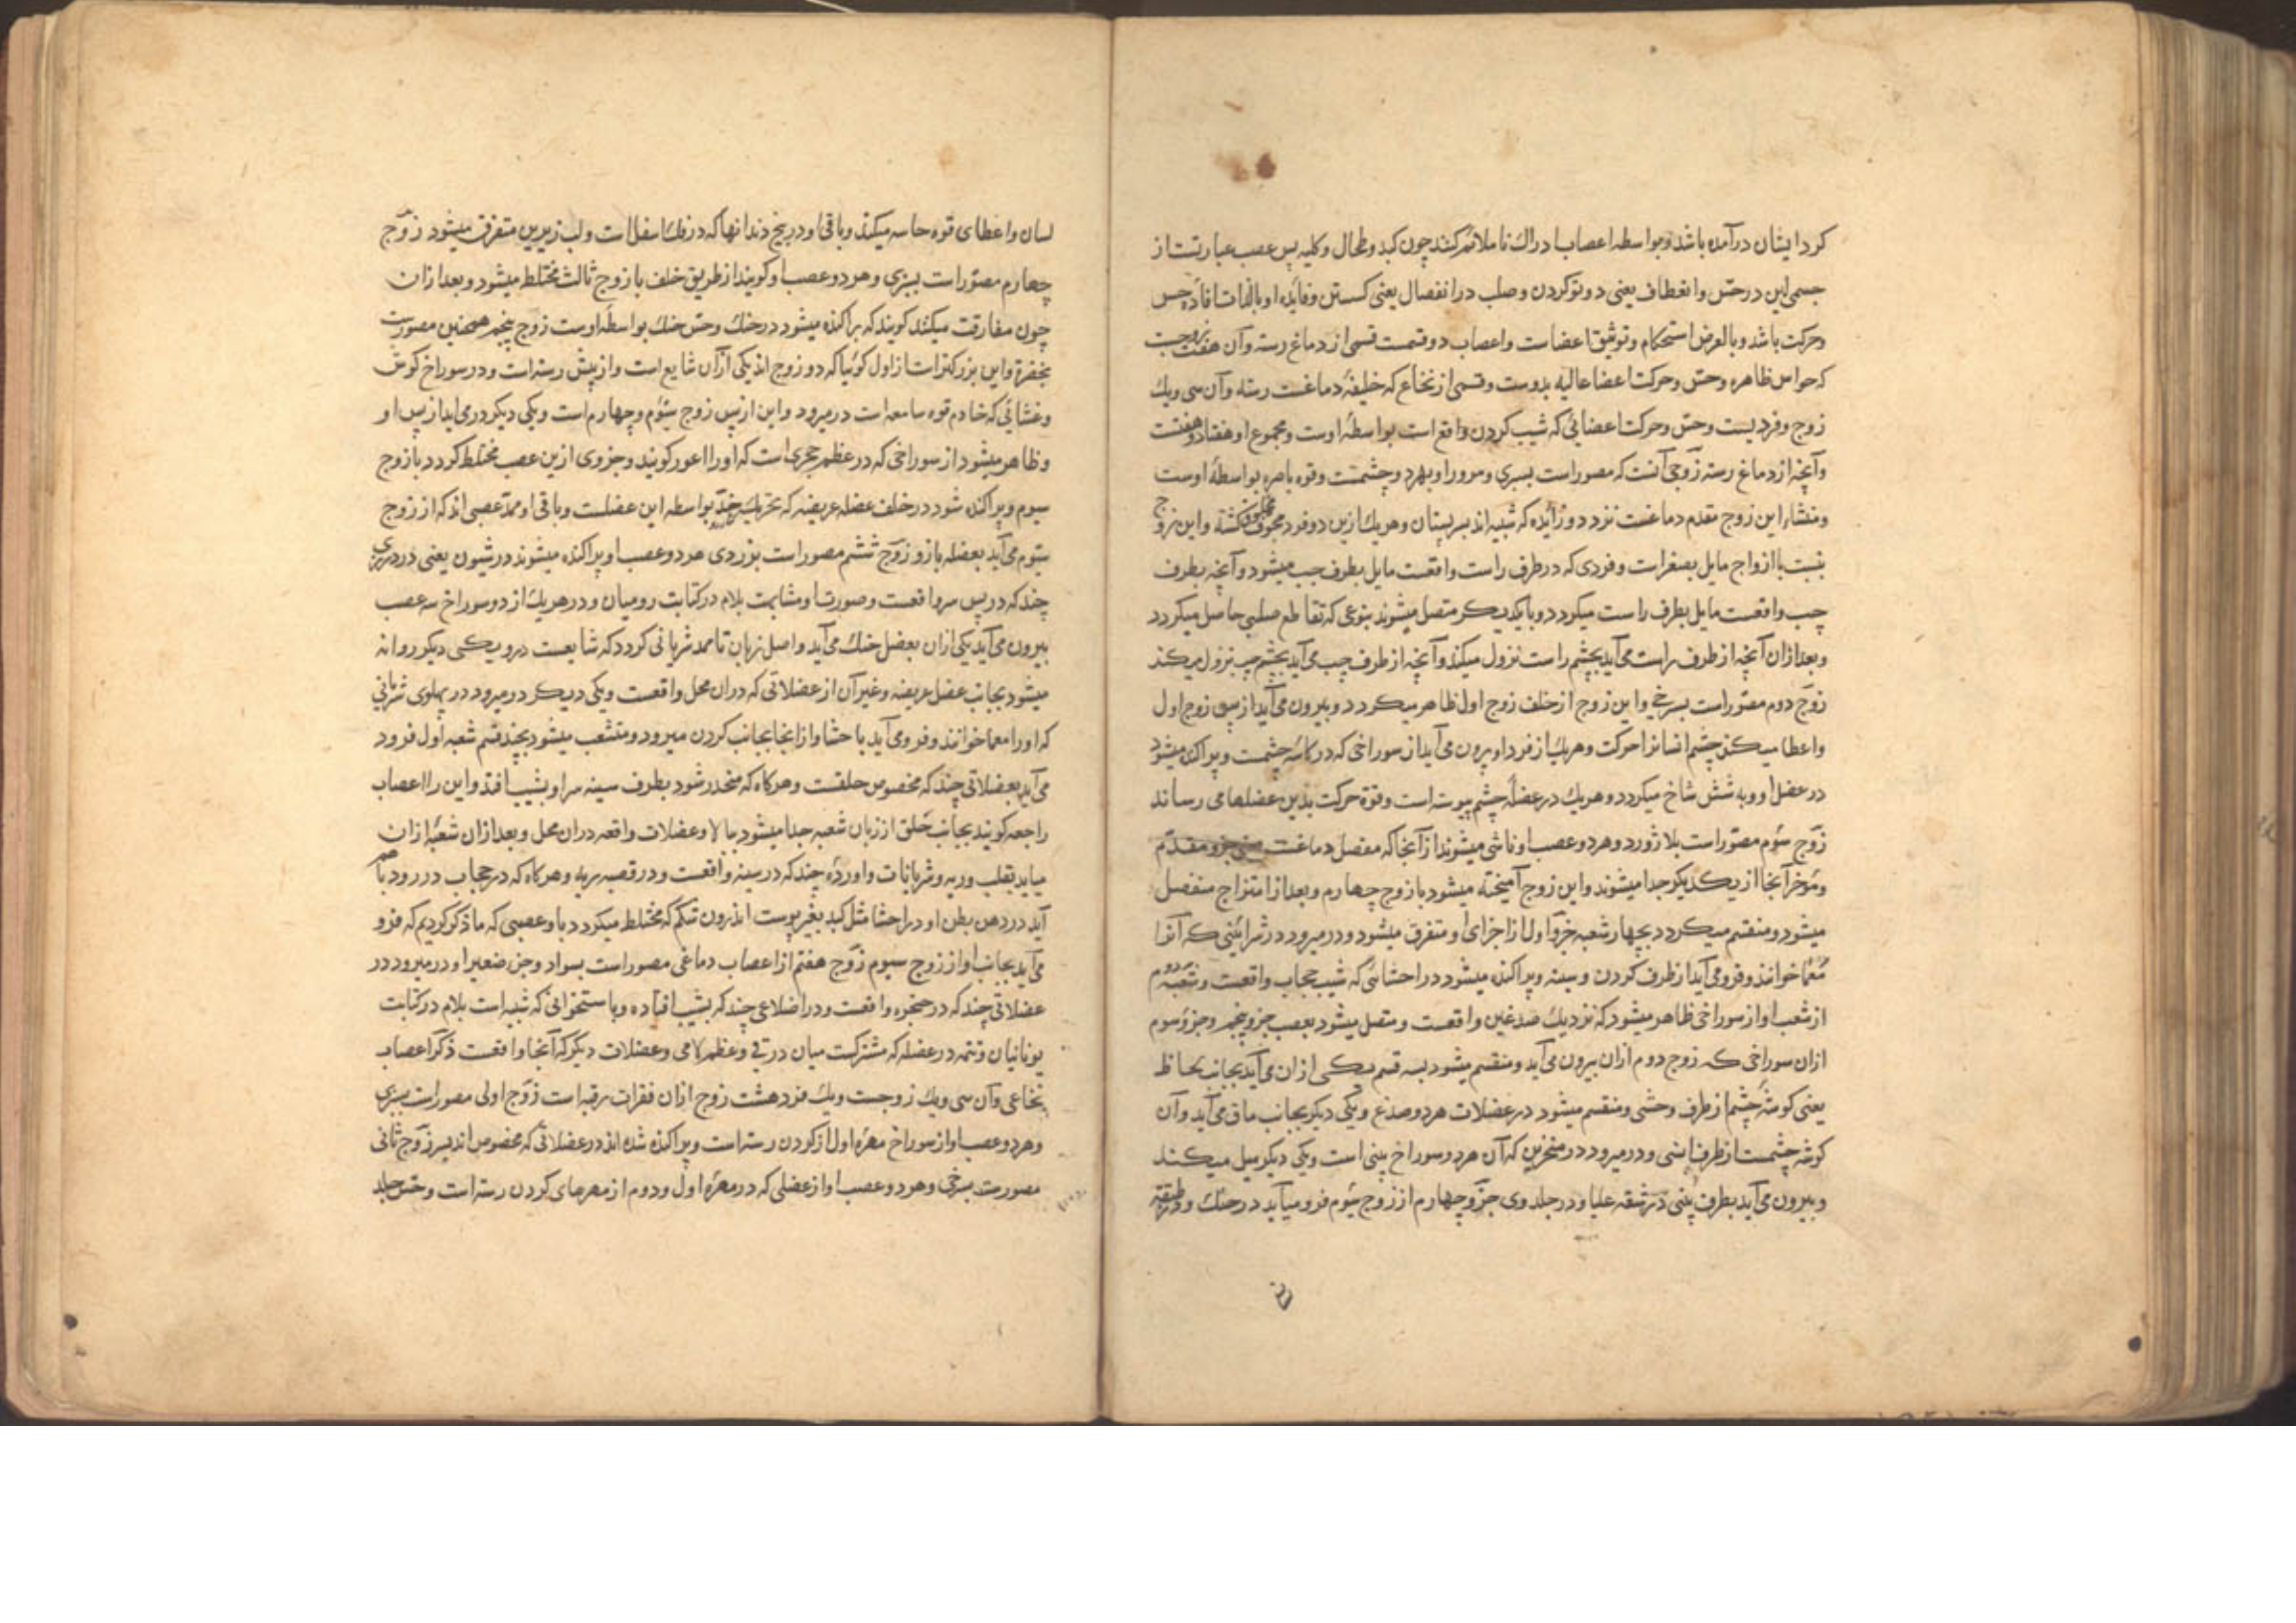 کرد ایشان درآمده باشد و بواسطه اعصاب ادراک ناملائم کنند چون کبد و طحال و کلیه پس عصب عبارتست از
جسمی لین در حس و انعطاف یعنی دوتو کردن و صلب در انفصال یعنی کسستن و فایده او بالذات افاده حس
و حرکت باشد و بالعرض استحکام و توثیق اعضاست و اعصاب دو قسمت قسمی از دماغ رسته و آن هفت زوجست
که حواس ظاهره و حس و حرکت اعضا عالیه بدوست و قسمی از نخاع که خلیفهٔ دماغست رسته و آن سی و یک
زوج و فردیست و حس و حرکت اعضائی که شیب کردن واقع است بواسطهٔ اوست و مجموع او هفتاد و هفتست
و آنچه از دماغ رسته زوجی آنست که مصور است بسبزی و مرور او بهر دو چشمست و قوه باصره بواسطهٔ اوست
و منشاء این زوج مقدم دماغست نزد دو زائده که شبیه اند بسر پستان و هر یک ازین دو فرد مجوف کشته و این زوج
بنسبت با ازواج مایل بصغر است و فردی که در طرف راست واقعست مایل بطرف چپ میشود و آنچه بطرف
چپ واقعست مایل بطرف راست میکردد و با یکدیکر متصل میشوند بنوعی که تقاطع صلیبی حاصل میکردد
و بعد ازان آنچه از طرف راست می آید بچشم راست نزول میکند و آنچه از طرف چپ می آید بچشم چپ نزول میکند
زوج دوم مصور است بسرخی و این زوج از خلف زوج اول ظاهر میکردد و بیرون می آید از پس زوج اول
و اعطا میکند چشم انسانرا حرکت و هر یک از فرد او بیرون می آید از سوراخی که در کاسه چشمست و پراکنده میشود
در عضل او و به شش شاخ میکردد و هر یک در عضلهٔ چشم پیوسته است و قوة حرکت بدین عضلها می رساند
زوج سوم مصور است بلاژورد و هر دو عصب او ناشی میشوند از آنجا که مفصل دماغست یعنی جزو مقدم
و موخر آنجا از یکدیکر جدا میشوند و این زوج آمیخته میشود با زوج چهارم و بعد از امتزاج منفصل
میشود و منقسم میکردد بچهار شعبه جزو اول از اجزای او متفرق میشود و در میرود در شرائینی که آنرا
خوانند و فرو می آید از طرف کردن و سینه و پراکنده میشود در احشائی که شیب حجاب واقعست و شعبهٔ دوم
از شعب او از سوراخی ظاهر میشود که نزدیک صدغین واقعست و متصل میشود بعصب جزو پنجم و جزو سوم
ازان سوراخی که زوج دوم ازان بیرون می آید و منقسم میشود بسه قسم یکی ازان می آید بجانب لحاظ
یعنی کوشهٔ چشم از طرف وحشی و منقسم میشود در عضلات هر دو صدغ و یکی دیکر بجانب ماق می آید و آن
کوشه چشمست از طرف انسی و در میرود در منخرین که آن هر دو سوراخ بینی است و یکی دیکر میل میکند
و بیرون می آید بطرف بینی در شقه علیا و در جلد وی جزو چهارم از زوج سوم فرو می آید در حنک و در طبقهٔ
لسان و اعطای قوه حاسه میکند و باقی او در بیخ دندانها که در فک اسفل است و لب زیرین متفرق میشود زوج
چهارم مصور است بسبزی و هر دو عصب او کویند از طریق خلف با زوج ثالث مختلط میشود و بعد ازان
چون مفارقت میکند کویند که پراکنده میشود در حنک و حس حنک بواسطه اوست زوج پنجم همچنین مصورست
و این بزرکتر است از اول کوئیا که دو زوج اند یکی ازان شایع است و از پیش رسته است و در سوراخ کوش
و غشائی که خادم قوه سامعه است در میرود و این از پس زوج سوم و چهارم است و یکی دیکر در می آید از پس او
و ظاهر میشود از سوراخی که در عظم حجری است که او را اعور کویند و جزوی ازین عصب مختلط کردد با زوج
سیوم و پراکنده شود در خلف عضله عریضه که تحریک خد بواسطه این عضلست و باقی او ممد عصبی اند که از زوج
سوم می آید بعضله بازو زوج ششم مصور است بزردی هر دو عصب او پراکنده میشوند در شیون یعنی در درزی
چند که در پس سر واقعست و صورت او مشابهت بلام در کتابت رومیان و در هر یک از دو سوراخ سه عصب
بیرون می آید یکی ازان بعضل حنک می آید و اصل زبان تا ممد شریانی کردد که شایعست درو و یکی دیکر روانه
میشود بجانب عضل عریضه و غیر آن از عضلاتی که دران محل واقعست و یکی دیکر در میرود در پهلوی شریانی
که او را خوانند و فرو می آید با حشا و از انجا بجانب کردن میرود و متشعب میشود بچند قسم شعبه اول فرود
می آید بعضلاتی چند که مخصوص حلقست و هرکاه که منحدر شود بطرف سینه سر او بشیب افتد و این را اعصاب
راجعه کویند بجانب حلق از زبان شعبه جدا میشود ببالا و عضلات واقعه دران محل و بعد ازان شعبهٔ ازان
میاید بقلب و ریه و شریانات و اورده چند که در سینه واقعست و در قصبه ریه و هرکاه که در حجاب در رود
آید در دهن بطن او در احشا مثل کبد بغیر پوست اندرون شکم که مختلط میکردد با و عصبی که ما ذکر کردیم که فرو
می آید بجانب او از زوج سیوم زوج هفتم از اعصاب دماغی مصور است بسواد و جزو صغیر او در میرود در
عضلاتی چند که در حنجره واقعست و در اضلاعی چند که بشیب افتاده و باستخوانی که شبیه است بلام در کتابت
یونانیان و تتمه در عضله که مشترکست میان درقی و عظم لامی و عضلات دیکر که آنجا واقعست ذکر اعصاب
نخاعی و آن سی و یک زوجست و یک فرد هشت زوج ازان فقرات رقبه است زوج اولی مصور است بسبزی
و هر دو عصب او از سوراخ مهرهٔ اول از کردن رسته است و پراکنده شده اند در عضلاتی که مخصوص اند بسر زوج ثانی
مصورست بسرخی و هر دو عصب او از عضلی که در مهرهٔ اول و دوم از مهرهای کردن رسته است و حس جلد